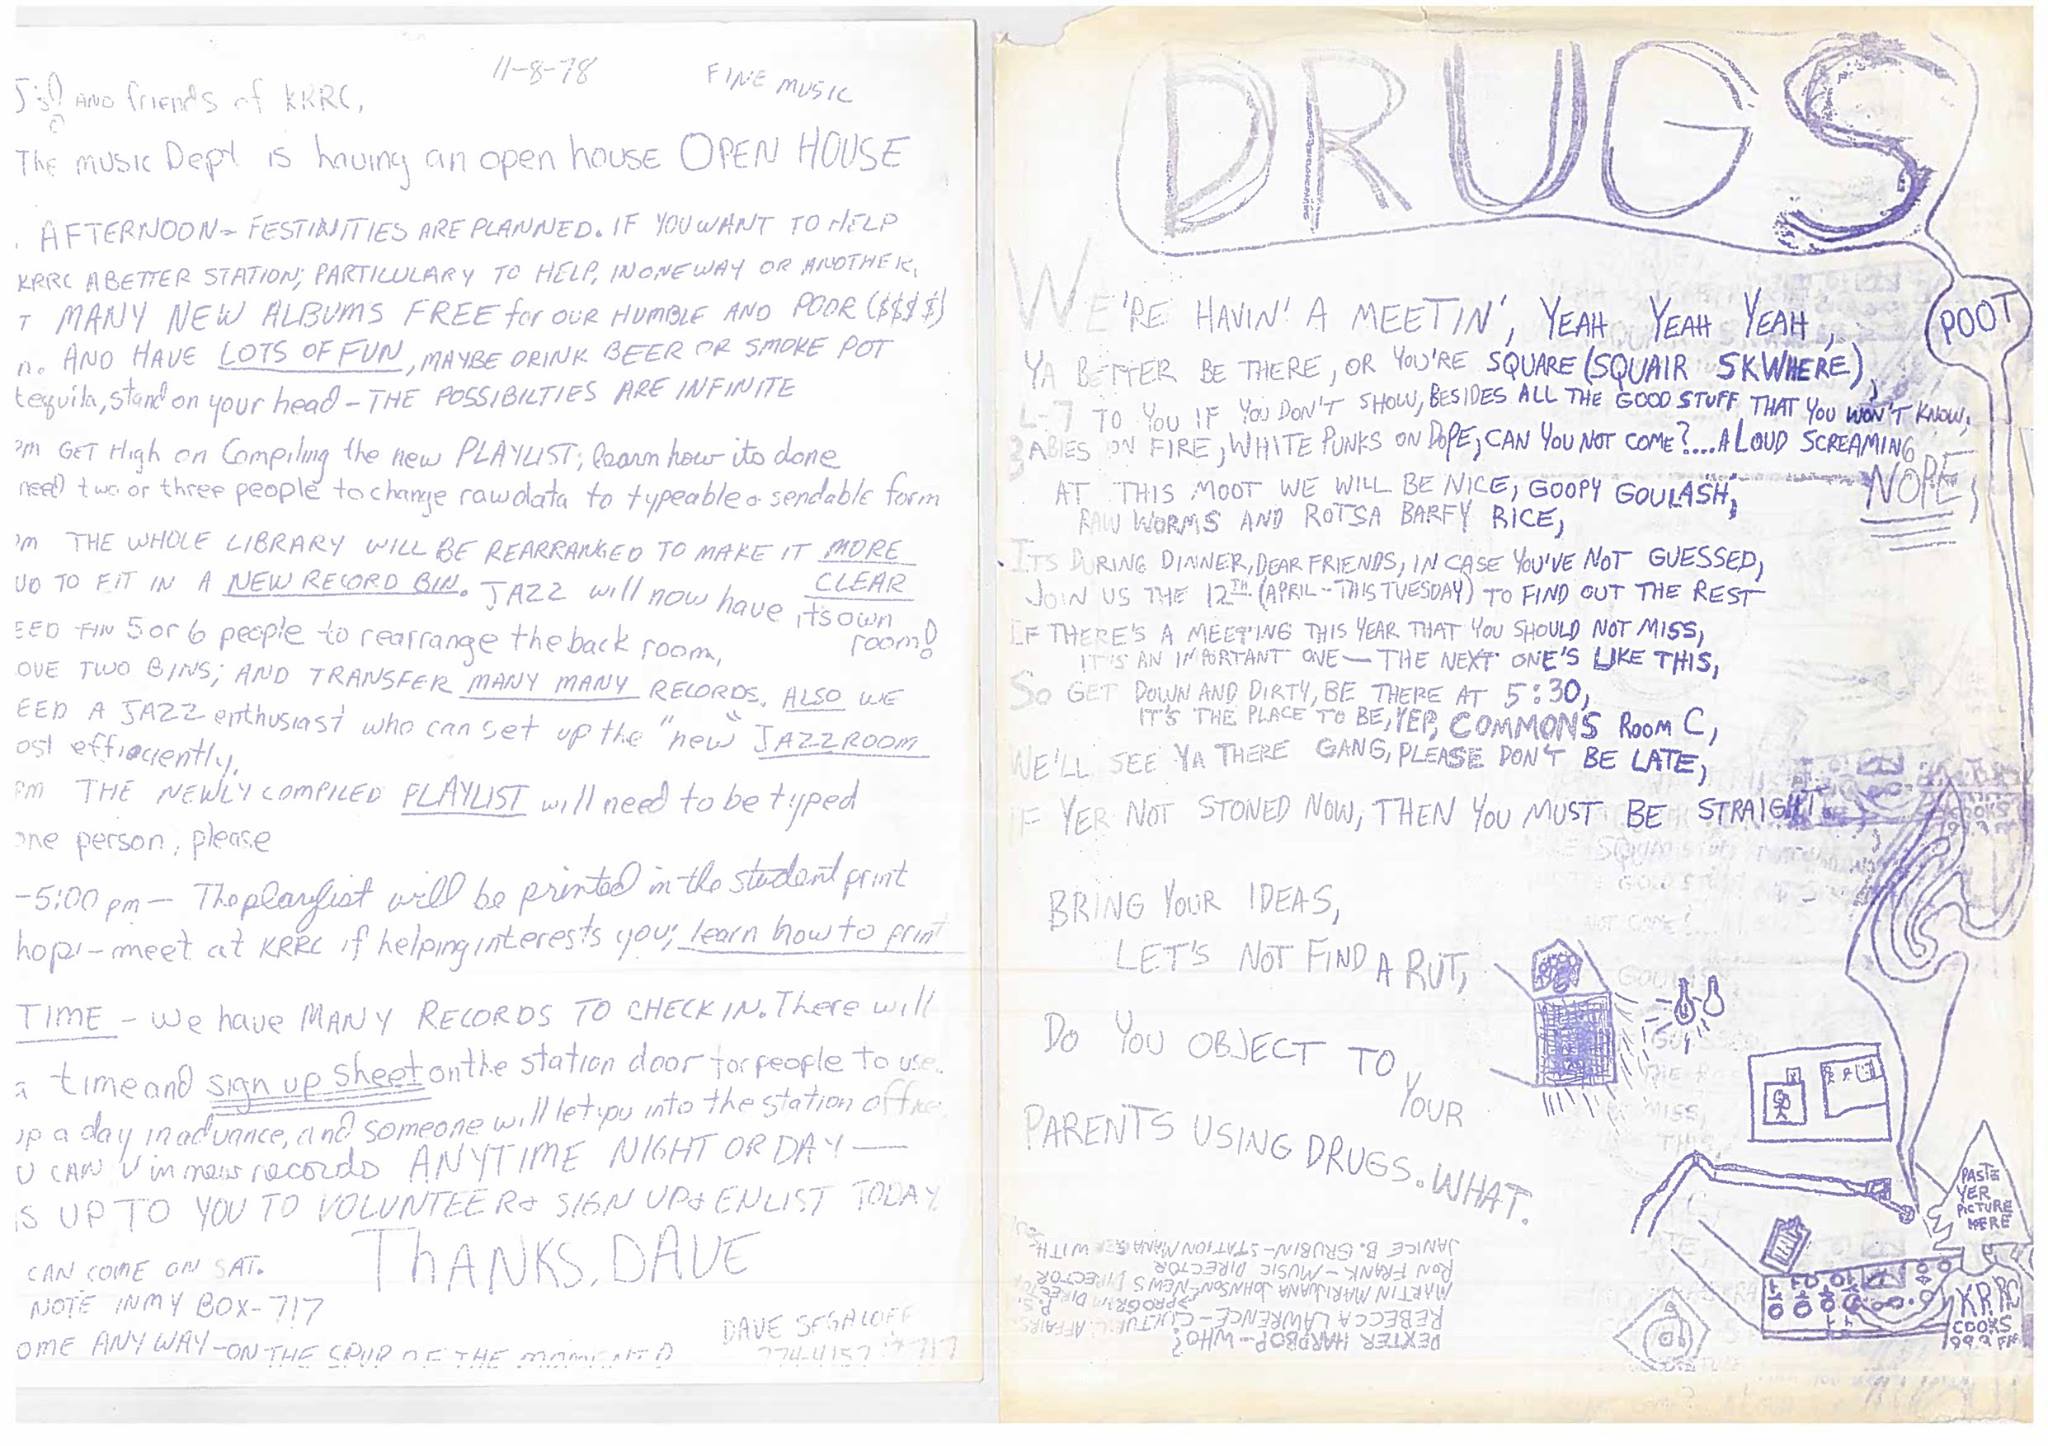 11-8-78
FINE MUSIC
AND friends of KRRC,
The music Dept is having an open house OPEN HOUSE
AFTERNOON - FESTIVITIES ARE PLANNED. IF YOU WANT TO HELP
KRRC A BETTER STATION; PARTICULARY TO HELP, IN ONE WAY OR ANOTHER,
T MANY NEW ALBUMS FREE for OUR HUMBLE AND POOR ($$$$)
n. AND HAVE LOTS OF FUN, MAYBE DRINK BEER OR SMOKE POT
tequila, stand on your head - THE POSSIBILTIES ARE INFINITE
PM GET High on Compiling the new PLAYLIST; learn how its done
need two or three people to change raw data to typeable & sendable form
PM THE WHOLE LIBRARY WILL BE REARRANGED TO MAKE IT MORE CLEAR
TO FIT IN A NEW RECORD BIN. JAZZ will now have its own room!
EED 5 or 6 people to rearrange the back room,
OVE TWO BINS; AND TRANSFER MANY MANY RECORDS. ALSO WE
EED A JAZZ enthusiast who can set up the "new" JAZZROOM
ost efficiently.
PM THE NEWLY COMPILED PLAYLIST will need to be typed
one person, please
-5:00 pm - The playlist will be printed in the student print
hop! - meet at KRRC if helping interests you; learn how to print
TIME - We have MANY RECORDS TO CHECK IN. There will
a time and sign up sheet on the station door for people to use.
up a day in advance, and someone will let you into the station office.
U CAN √ in new records ANYTIME NIGHT OR DAY —
IS UP TO YOU TO VOLUNTEER & SIGN UP & ENLIST TODAY.
THANKS, DAVE
CAN COME ON SAT.
NOTE IN MY BOX - 717
OME ANY WAY - ON THE SPUR OF THE MOMENT!
DAVE SEGALOFF
774-4157 717
DRUGS
POOT
WE'RE HAVIN' A MEETIN', YEAH YEAH YEAH,
YA BETTER BE THERE, OR YOU'RE SQUARE (SQUAIR SKWHERE),
L-7 TO YOU IF YOU DON'T SHOW, BESIDES ALL THE GOOD STUFF THAT YOU WON'T KNOW,
BABIES ON FIRE, WHITE PUNKS ON DOPE, CAN YOU NOT COME?....A LOUD SCREAMING NOPE,
AT THIS MOOT WE WILL BE NICE, GOOPY GOULASH,
RAW WORMS AND ROTSA BARFY RICE,
ITS DURING DINNER, DEAR FRIENDS, IN CASE YOU'VE NOT GUESSED,
JOIN US THE 12TH (APRIL - THIS TUESDAY) TO FIND OUT THE REST
IF THERE'S A MEETING THIS YEAR THAT YOU SHOULD NOT MISS,
IT'S AN IMPORTANT ONE — THE NEXT ONE'S LIKE THIS,
SO GET DOWN AND DIRTY, BE THERE AT 5:30,
IT'S THE PLACE TO BE, YEP, COMMONS ROOM C,
WE'LL SEE YA THERE GANG, PLEASE DON'T BE LATE,
IF YER NOT STONED NOW, THEN YOU MUST BE STRAIGHT.
BRING YOUR IDEAS,
LET'S NOT FIND A RUT,
DO YOU OBJECT TO YOUR
PARENTS USING DRUGS. WHAT.
PASTE
YER
PICTURE
HERE
KRRC
COOKS
99.3 FM
DEXTER HARDBOP - WHO?
REBECCA LAWRENCE - CULTURAL AFFAIRS.
PROGRAM DIRECTOR
MARTIN MARIJUANA JOHNSEN - NEWS DIRECTOR
RON FRANK - MUSIC DIRECTOR
JANICE B. GRUBIN - STATION MANAGER WITH